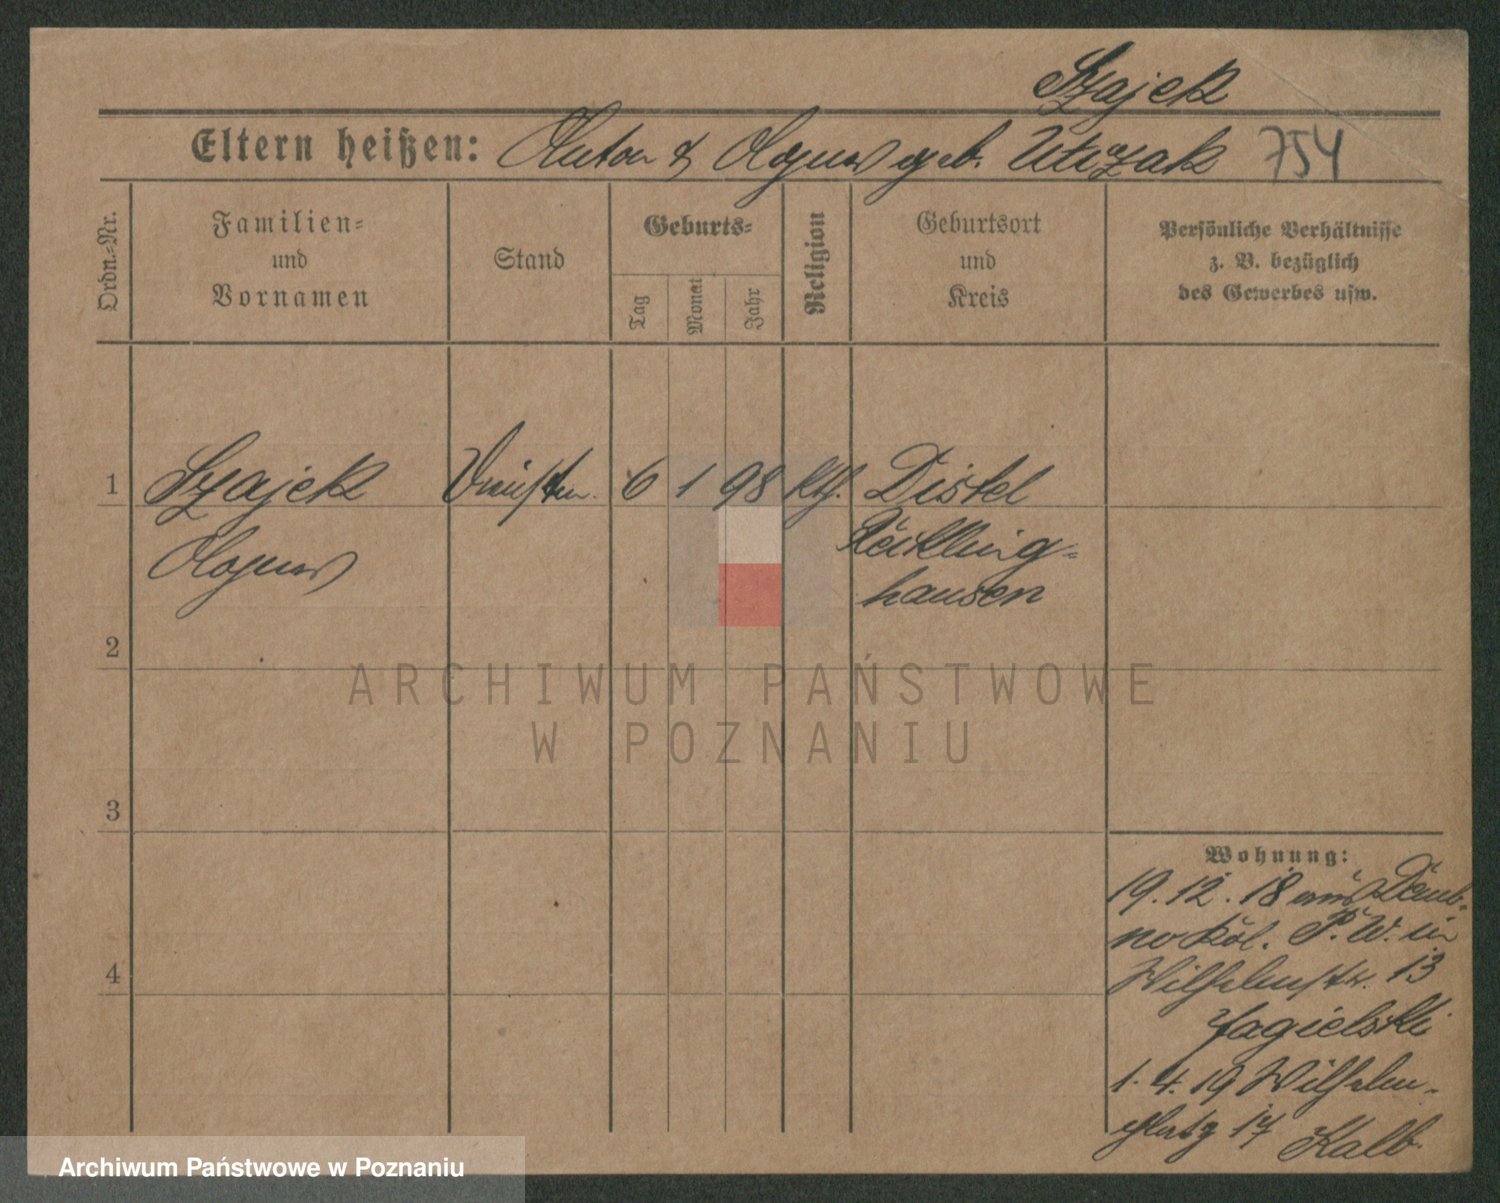 Szajek
Eltern heißen: Anton & Agnes geb. Utizak 754
Ordn.-Nr.
Familien-
und
Vornamen
Stand
Geburts-
Tag
Monat
Jahr
Religion
Geburtsort
und
Kreis
Persönliche Verhältnisse
z. B. bezüglich
des Gewerbes usw.
1 Szajek 6 1 98 kth. Distel
Agnes
Recklling-
hausen
2
3
4
ARCHIWUM PAŃSTWOWE
W POZNANIU
Wohnung:
19.12.18 aus Demb-
no Kol. P. W. in
Wilhelmstr. 13
Jagielski
1. 4. 19 Wilhelm-
platz 17 Kalb
Archiwum Państwowe w Poznaniu